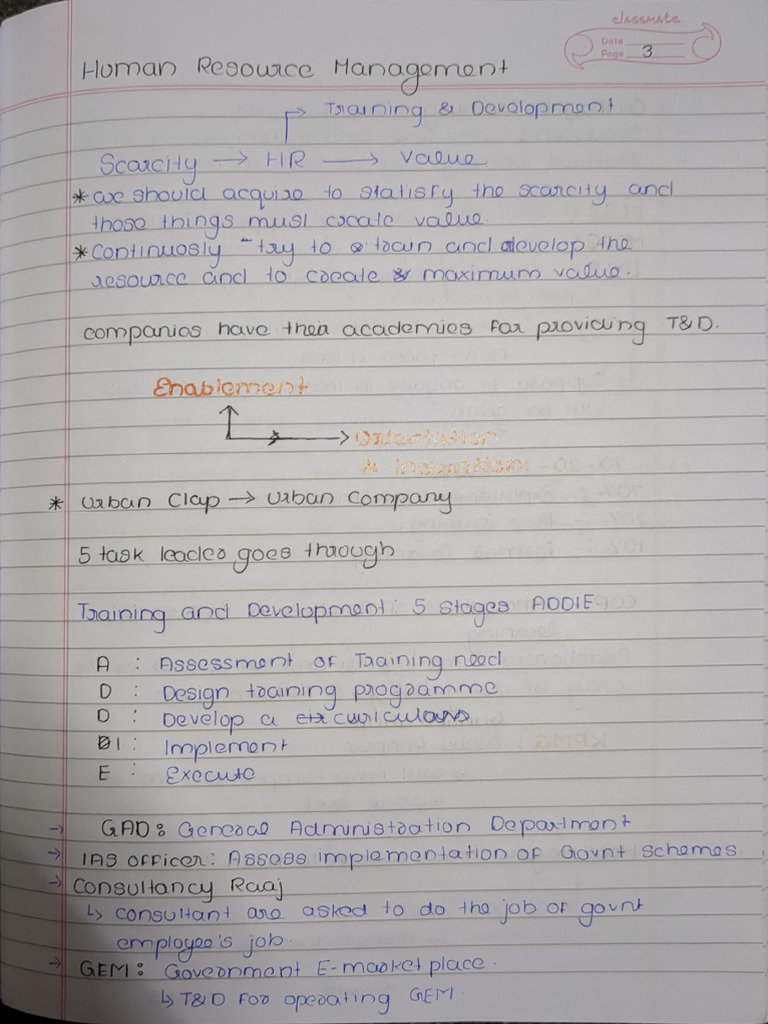 classmate
Date
Page 3
Human Resource Management
Training & Development
Scarcity → HR → Value
* we should acquire to statisfy the scarcity and
those things must create value.
* continuosly try to train and develop the
resource and to create & maximum value.
companies have their academies for providing T&D.
Enablement
Orientation
&
* Urban Clap → Urban Company
5 task leader goes through
Training and Development: 5 Stages ADDIE
A : Assessment of Training need
D : Design training programme
D : Develop a curiculars
I : Implement
E : Execute
→ GAD: General Administration Department
→ IAS officer: Assess implementation of Govnt schemes.
→ Consultancy Raaj
↳ consultant are asked to do the job of govnt
employee's job.
→ GEM: Government E-market place.
↳ T&D for operating GEM.